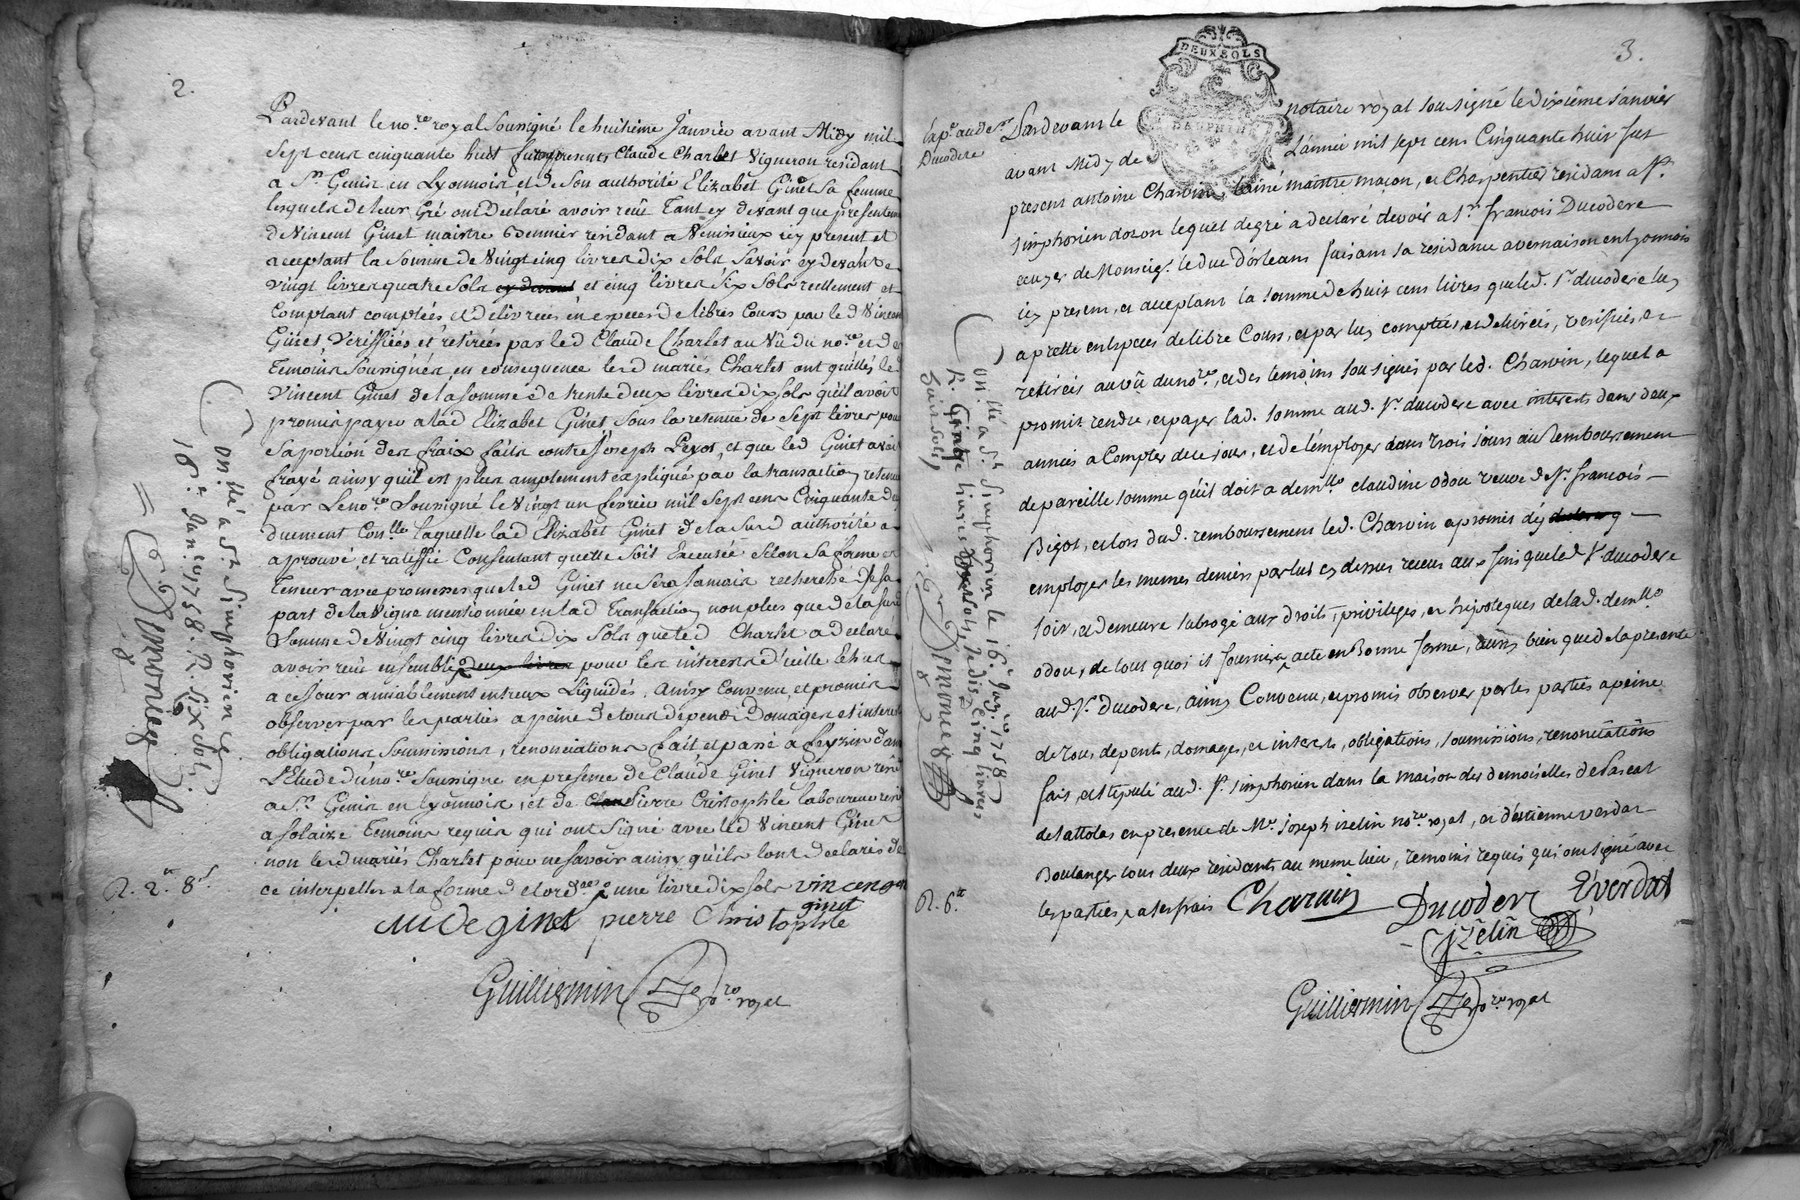 2.
Pardevant le no.re royal soussigné le huitieme Janvier avant Midy mil
sept cens cinquante huit furent presents Claude Charlet Vigneron residant
a St. Genis en Lyonnois et de son authorité Elizabet Ginet sa femme
lesquels de leur Gré ont declaré avoir reçû tant cy devant que presentement
de Vincent Ginet maistre residant a Venissieux icy present et
aceptant la somme de Vingt cinq livres dix sols savoir cy devant
vingt livres quatre sols et cinq livres six sols reellement et
comptant comptées et delivrées en especes de libres cours par led Vincent
Ginet Veriffiées et retirées par led Claude Charlet au Vû du no.re et des
temoins soussignés, en consequence lesd mariés Charlet ont quitté led
Vincent Ginet de la somme de trente deux livres dix sols qu'il avoit
promis payer a lad Elizabet Ginet sous la retenue de sept livres pour
sa portion des fraix faits contre Joseph Peyot, et que led Ginet avoit
frayé ainsy qu'il est plus amplement expliqué par la transaction retenue
par Le no.re soussigné le Vingt un fevrier mil sept cens cinquante
duement con.llé laquelle lad Elizabet Ginet de la susd authorité a
aprouvé et ratiffié Consentant quelle soit Executée selon sa forme et
teneur avec promesses que led Ginet ne sera jamais recherché de sa
part de la Vigne mentionnée en lad Transaction non plus que de la susd
somme de Vingt cinq livres dix sols que led Charlet a declaré
avoir reçu ensemble deux livres pour les interests d'icelle Echus
a ce jour amiablement entreux Liquidés, Ainsy Convenu, et promis
observer par les parties a peine de tous depends Domages et interets
obligations soumissions, renonciations fait et passé a feyzin dans
L'Etude du no.re soussigné en presence de Claude Ginet Vigneron resid
a St. Genis en Lyonnois, et de Pierre Cristophle laboureur resid
a solaize temoins requis qui ont signé avec led Vincent Ginet
non lesd mariés Charlet pour ne savoir ainsy qu'ils l'ont declarés de
ce interpellés a la forme de l'ord.ce une livre dix sols vincen
ginet
Claude ginet pierre Christophle
Guilliermin no.re royal
Con.llé a St. Simphorien le
16.e Jan.er 1758. R. six sols
Simonet
R. 2.tt 8.s
3.
DEUX SOLS
DAUPHINÉ
Ducodere
Pardevant le notaire royal soussigné le dixieme Janvier
avant Midy de L'année mil sept cens Cinquante huit fut
present antoine Charvin, lainé maitre macon, et Charpentier residant a St.
simphorien dozon lequel de gré a declaré devoir a Sr. francois Ducodere
ecuyer de Monseig.r le duc d'orleans faisant sa residance a vernaison en lyonnois
icy present, et acceptant la somme de huit cens livres que led. Sr ducodere luy
a prette en especes de libre Cours, et par luy comptées, et delivrées, verifiées, et
retirées au vû du no.re, et des temoins soussignés par led. Charvin, lequel a
promis rendre, et payer lad. somme aud. Sr. ducodere avec interests dans deux
années a Compter de ce jour, et de l'employer dans trois jours au remboursement
de pareille somme qu'il doit a dem.lle claudine odou veuve de Sr. francois
Bigot, et lors dud. remboursement led. Charvin a promis d'y
employer les memes deniers par lui cy dessus receus aux fins que led Sr ducodere
soit, et demeure subrogé aux droits, privileges, et hipoteques de lad. dem.lle
odou, de tout quoi il fournira acte en Bonne forme, aussy bien que de la presente
aud. Sr. Ducodere, ainsy Convenu, et promis observer par les parties a peine
de tous, depents, domages, et interets, obligations, soumissions, renonciations
fait, et stipulé aud. St. simphorien dans la maison des demoiselles de pascal
de sattolas en presence de Me. joseph izelin no.re royal, et d'estienne verdat
Boulanger tous deux residants au meme lieu, temoins requis qui ont signé avec
les parties, a ses frais Charvin Ducoder E verdat
jzelin
Guilliermin no.re royal
Con.llé a St. Simphorien le 16.e Jan.er 1758
R. Cinq livres
huit sols
Simonet
R. 6.tt